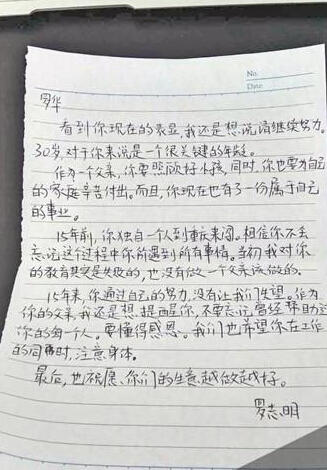 No.
Date
罗华
看到你现在的表显,我还是想说请继续努力。
30岁,对于你来说是一个很关键的年龄。
作为一个父亲,你要照顾好小孩,同时,你也要为自己
的家庭辛苦付出。而且,你现在也有了一份属于自己
的事业。
15年前,你独自一个人到重庆来闯。相信你不会
忘记这个过程中你前遇到所有事情。当初我对你
的教育其实是失败的,也没有做一个父亲该做的。
15年来,你通过自己的努力,没有让我们失望。作为
你的父亲,我还是想提醒你,不要忘记曾经帮助过
你的每个人。要懂得感恩。我们也希望你在工作
的同时,注意身体。
最后,也祝愿你们的生意越做越好。
罗志明